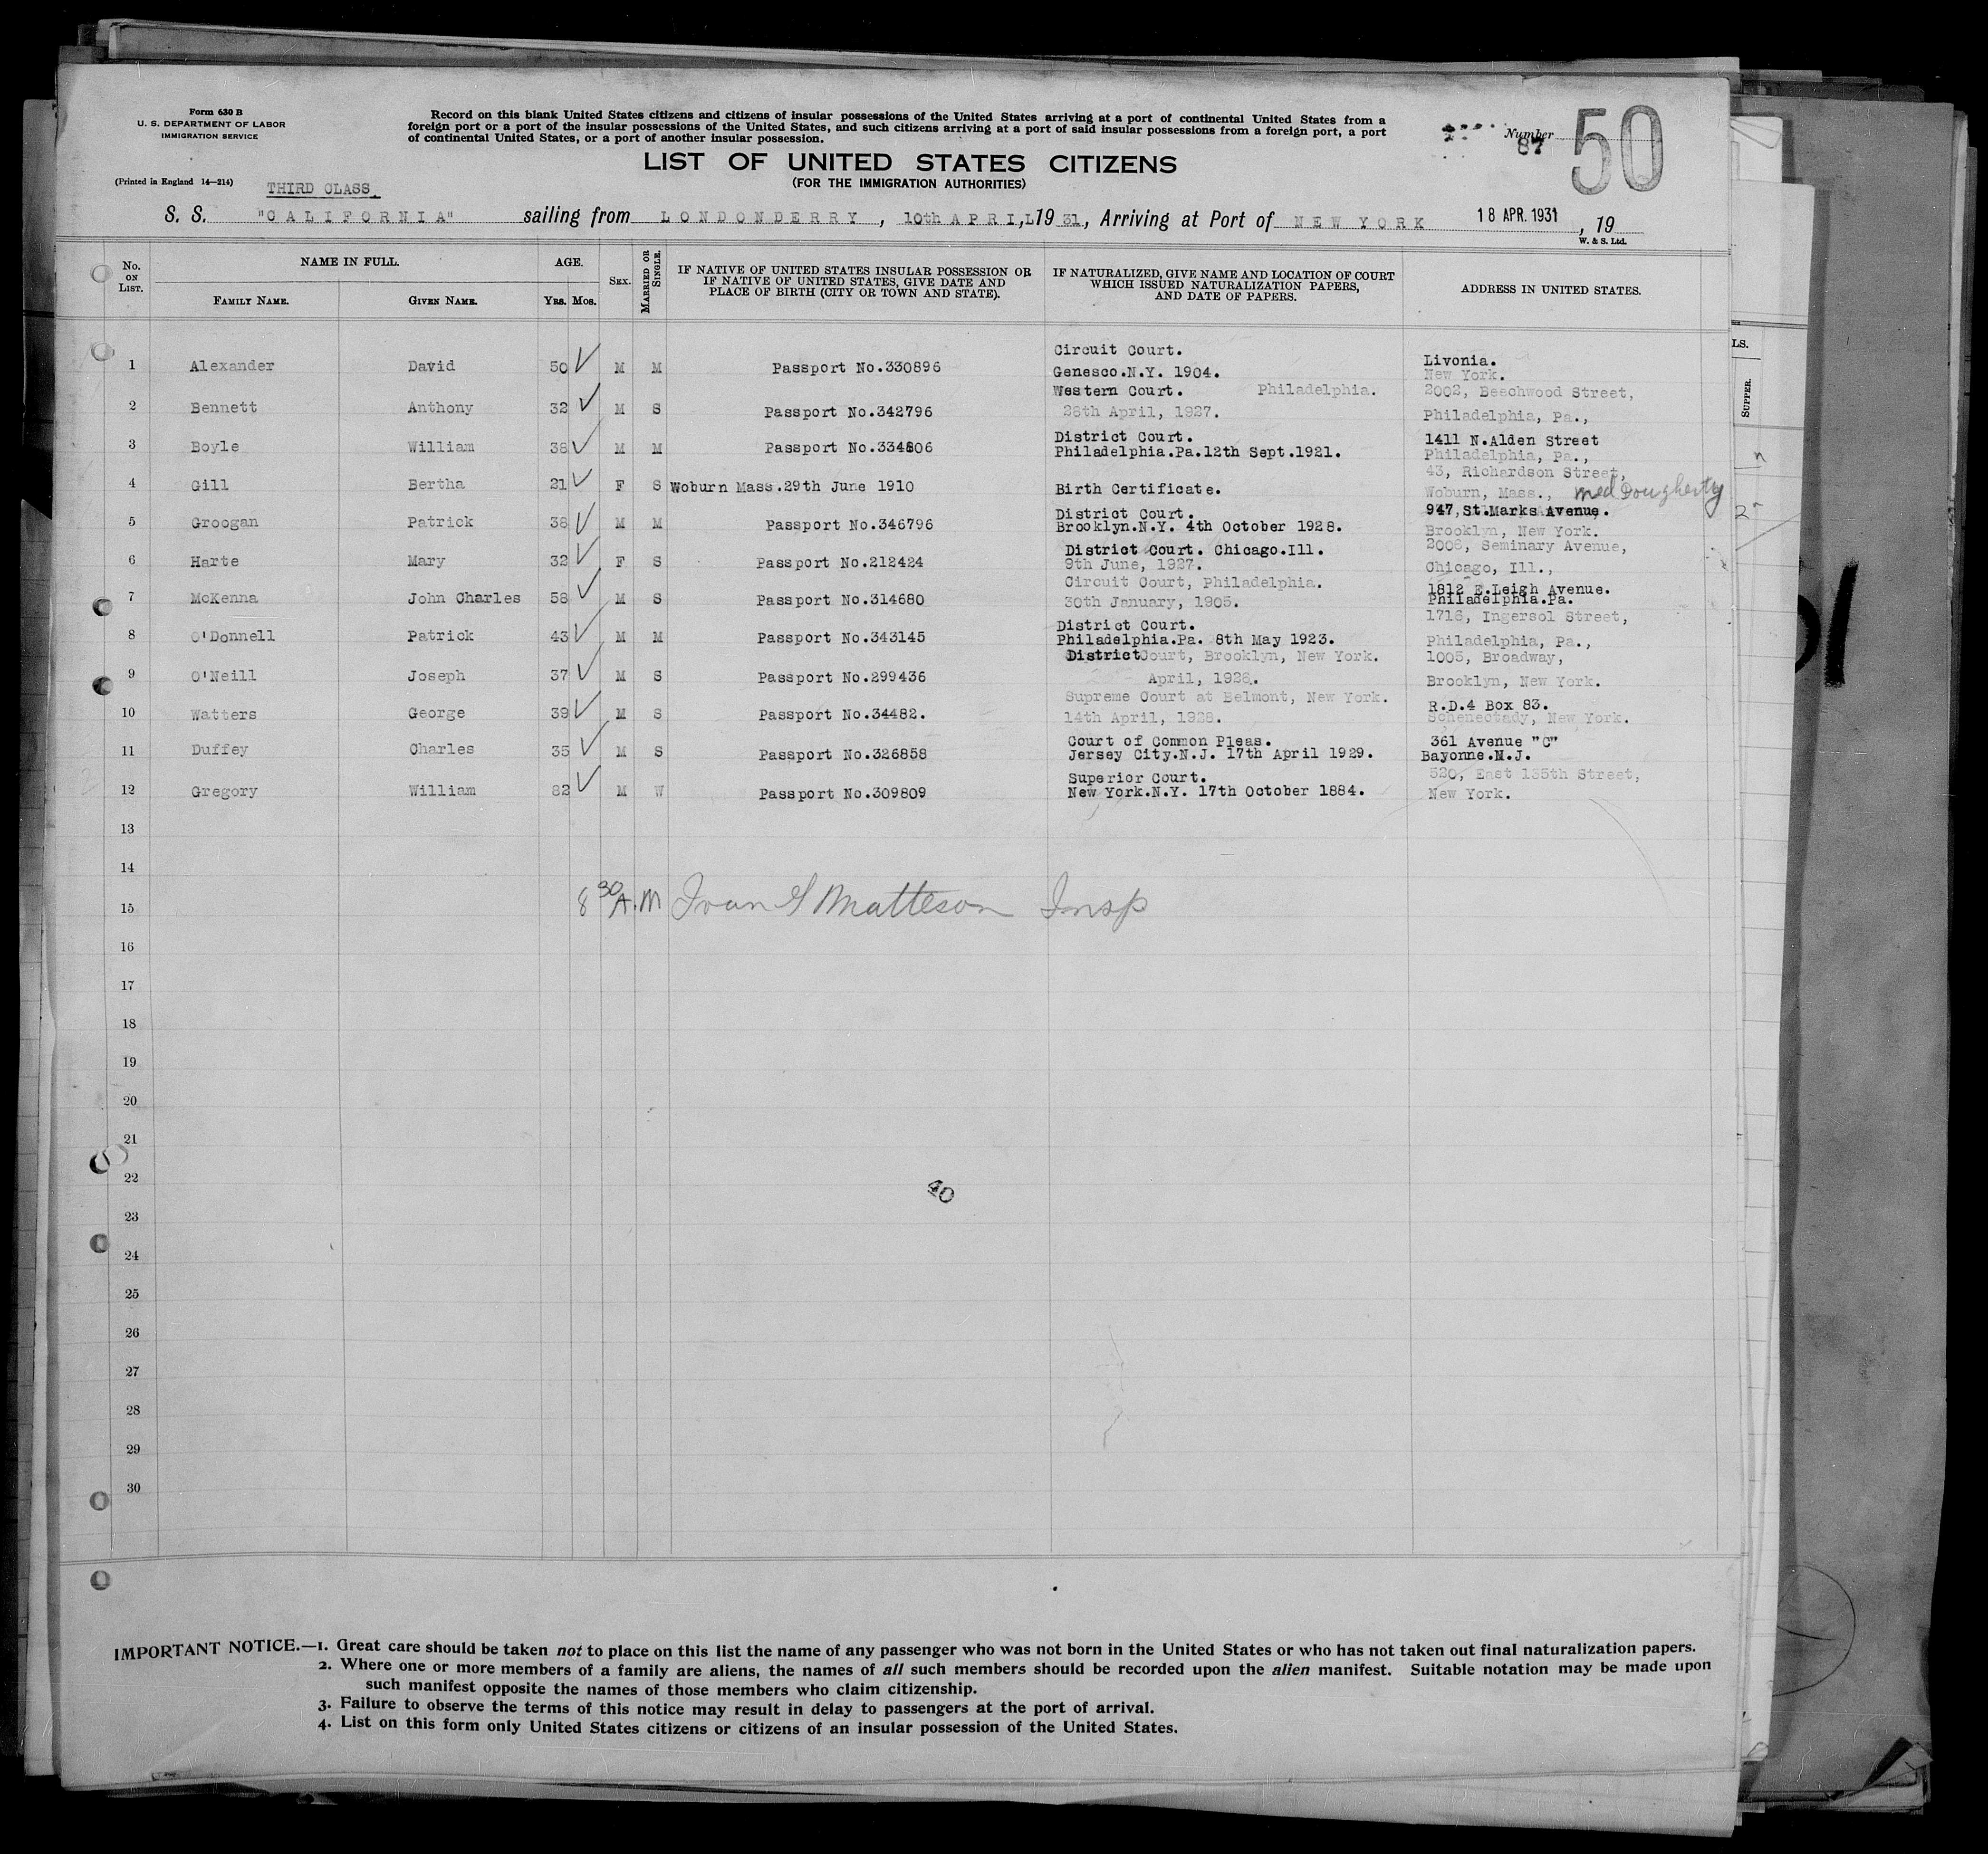 Form 630 B
U. S. DEPARTMENT OF LABOR
IMMIGRATION SERVICE
(Printed in England 14—214)
Record on this blank United States citizens and citizens of insular possessions of the United States arriving at a port of continental United States from a
foreign port or a port of the insular possessions of the United States, and such citizens arriving at a port of said insular possessions from a foreign port, a port
of continental United States, or a port of another insular possession.
Number 87 50
LIST OF UNITED STATES CITIZENS
(FOR THE IMMIGRATION AUTHORITIES)
THIRD CLASS.
S. S. "CALIFORNIA" sailing from LONDONDERRY, 10th APRIL, 1931, Arriving at Port of NEW YORK 18 APR. 1931, 19
W. & S. Ltd.
No. ON LIST. NAME IN FULL. FAMILY NAME. GIVEN NAME. AGE. YRS. MOS. SEX. MARRIED OR SINGLE. IF NATIVE OF UNITED STATES INSULAR POSSESSION OR IF NATIVE OF UNITED STATES, GIVE DATE AND PLACE OF BIRTH (CITY OR TOWN AND STATE). IF NATURALIZED, GIVE NAME AND LOCATION OF COURT WHICH ISSUED NATURALIZATION PAPERS, AND DATE OF PAPERS. ADDRESS IN UNITED STATES.
1 Alexander David 50 M M Passport No.330896 Circuit Court. Genesco.N.Y. 1904. Livonia. New York.
2 Bennett Anthony 32 M S Passport No.342796 Western Court. Philadelphia. 28th April, 1927. 2002, Beechwood Street, Philadelphia, Pa.,
3 Boyle William 38 M M Passport No.334806 District Court. Philadelphia.Pa.12th Sept.1921. 1411 N.Alden Street Philadelphia, Pa.,
4 Gill Bertha 21 F S Woburn Mass.29th June 1910 Birth Certificate. 43, Richardson Street, Woburn, Mass., med Dougherty
5 Groogan Patrick 38 M M Passport No.346796 District Court. Brooklyn.N.Y. 4th October 1928. 947, St.Marks Avenue. Brooklyn, New York.
6 Harte Mary 32 F S Passport No.212424 District Court. Chicago.Ill. 9th June, 1927. 2006, Seminary Avenue, Chicago, Ill.,
7 McKenna John Charles 58 M S Passport No.314680 Circuit Court, Philadelphia. 30th January, 1905. 1812 E.Leigh Avenue. Philadelphia.Pa.
8 O'Donnell Patrick 43 M M Passport No.343145 District Court. Philadelphia.Pa. 8th May 1923. 1716, Ingersol Street, Philadelphia, Pa.,
9 O'Neill Joseph 37 M S Passport No.299436 District Court, Brooklyn, New York. April, 1928. 1005, Broadway, Brooklyn, New York.
10 Watters George 39 M S Passport No.34482. Supreme Court at Belmont, New York. 14th April, 1928. R.D.4 Box 83. Schenectady, New York.
11 Duffey Charles 35 M S Passport No.326858 Court of Common Pleas. Jersey City.N.J. 17th April 1929. 361 Avenue "C" Bayonne.N.J.
12 Gregory William 82 M W Passport No.309809 Superior Court. New York.N.Y. 17th October 1884. 520, East 135th Street, New York.
13
14
15 8 30 A.M Ivan G Matteson Insp
16
17
18
19
20
21
22
40
23
24
25
26
27
28
29
30
LS.
SUPPER.
IMPORTANT NOTICE.—1. Great care should be taken not to place on this list the name of any passenger who was not born in the United States or who has not taken out final naturalization papers.
2. Where one or more members of a family are aliens, the names of all such members should be recorded upon the alien manifest. Suitable notation may be made upon
such manifest opposite the names of those members who claim citizenship.
3. Failure to observe the terms of this notice may result in delay to passengers at the port of arrival.
4. List on this form only United States citizens or citizens of an insular possession of the United States.